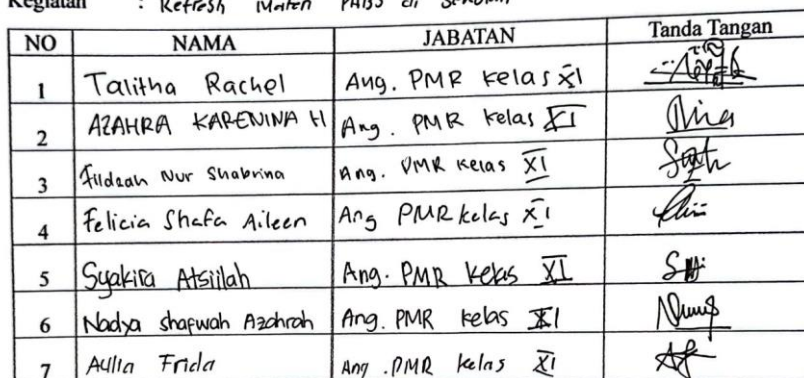 Kegiatan : Refresh Materi di
NO NAMA JABATAN Tanda Tangan
1 Talitha Rachel Ang. PMR kelas XI
2 AZAHRA KARENINA H Ang. PMR kelas XI
3 Nur Shabrina Ang. PMR kelas XI
4 Felicia Shafa Aileen Ang PMR kelas XI
5 Syakira Atsiilah Ang. PMR kelas XI
6 Nadya shafwah Azahrah Ang. PMR kelas XI
7 Aulia Frida Ang. PMR kelas XI